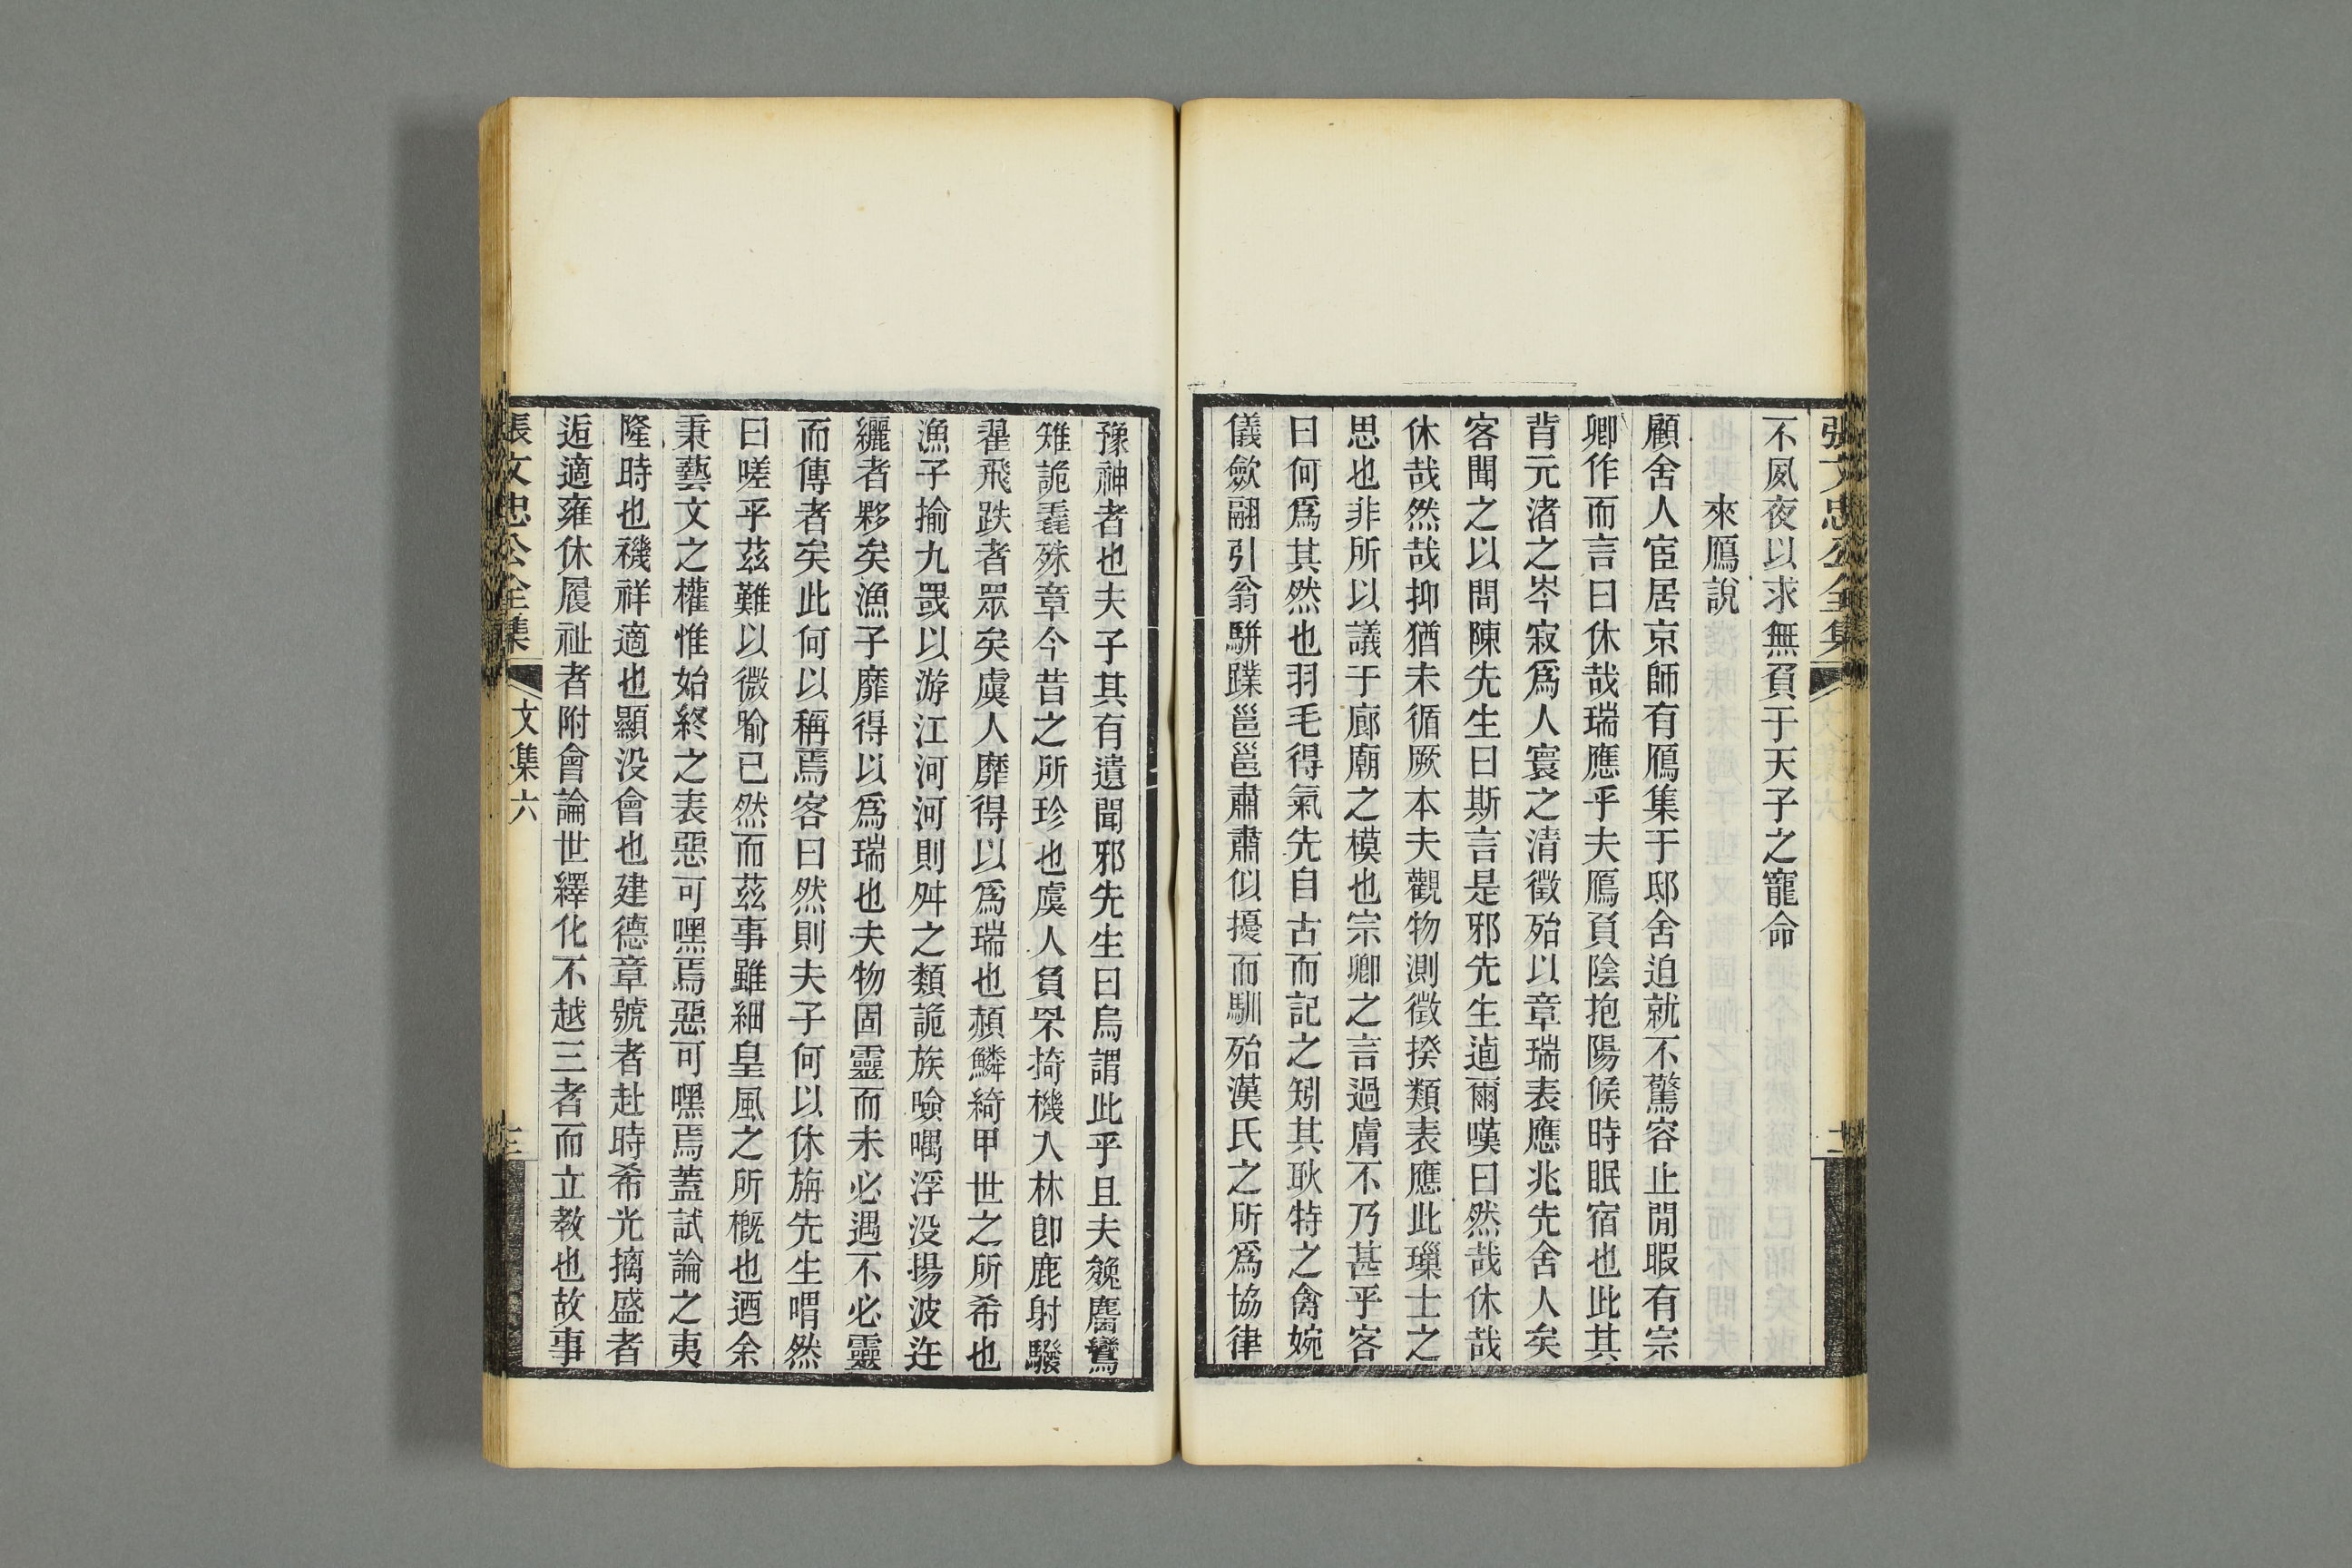 張文忠公全集
不夙夜以求無負于天子之寵命
來鴈說
顧舍人宦居京師有鴈集于邸舍迫就不驚容止閒暇有宗
卿作而言曰休哉瑞應乎夫鴈負陰抱陽候時眠宿也此其
背元渚之岑寂爲人寰之清徵殆以章瑞表應兆先舍人矣
客聞之以問陳先生曰斯言是邪先生逌爾嘆曰然哉休哉
休哉然哉抑猶未循厥本夫觀物測徵揆類表應此璅士之
思也非所以議于廊廟之模也宗卿之言過膚不乃甚乎客
曰何爲其然也羽毛得氣先自古而記之矧其耿特之禽婉
儀歛翮引翁騈蹼邕邕肅肅似擾而馴殆漢氏之所爲協律
豫神者也夫子其有遺聞邪先生曰烏謂此乎且夫麁麕鸞
雉詭毳殊章今昔之所珍也虞人負罘掎機入林卽鹿射騣
翟飛跌者眾矣虞人靡得以爲瑞也頳鱗綺甲世之所希也
漁子揄九罭以游江河河則舛之類詭族噞喁浮没揚波迕
纚者夥矣漁子靡得以爲瑞也夫物固靈而未必遇不必靈
而傳者矣此何以稱焉客曰然則夫子何以休旃先生喟然
曰嗟乎茲難以微喻已然而茲事雖細皇風之所概也迺余
秉藝文之權惟始終之表惡可嘿焉惡可嘿焉蓋試論之夷
隆時也禨祥適也顯没會也建德章號者赴時希光摛盛者
逅適雍休履祉者附會論世繹化不越三者而立教也故事
張文忠公全集
文集六